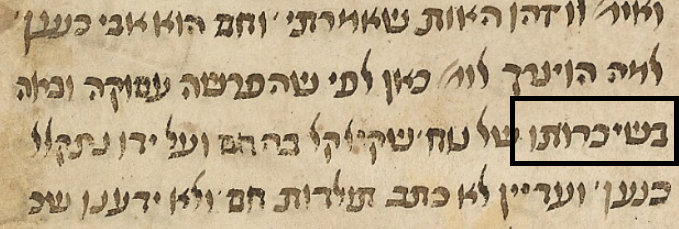 ואומ' וזהו האות שאמרתי' וחם הוא אבי כנען'
למה הוצרך לומ' כאן לפי שהפרשה עסוקה ובאה
בשיכרותו של נח' שקילקל בה חם ועל ידו נתקלל
כנען' ועדיין לא כתב תולדות חם' ולא ידענו שכ